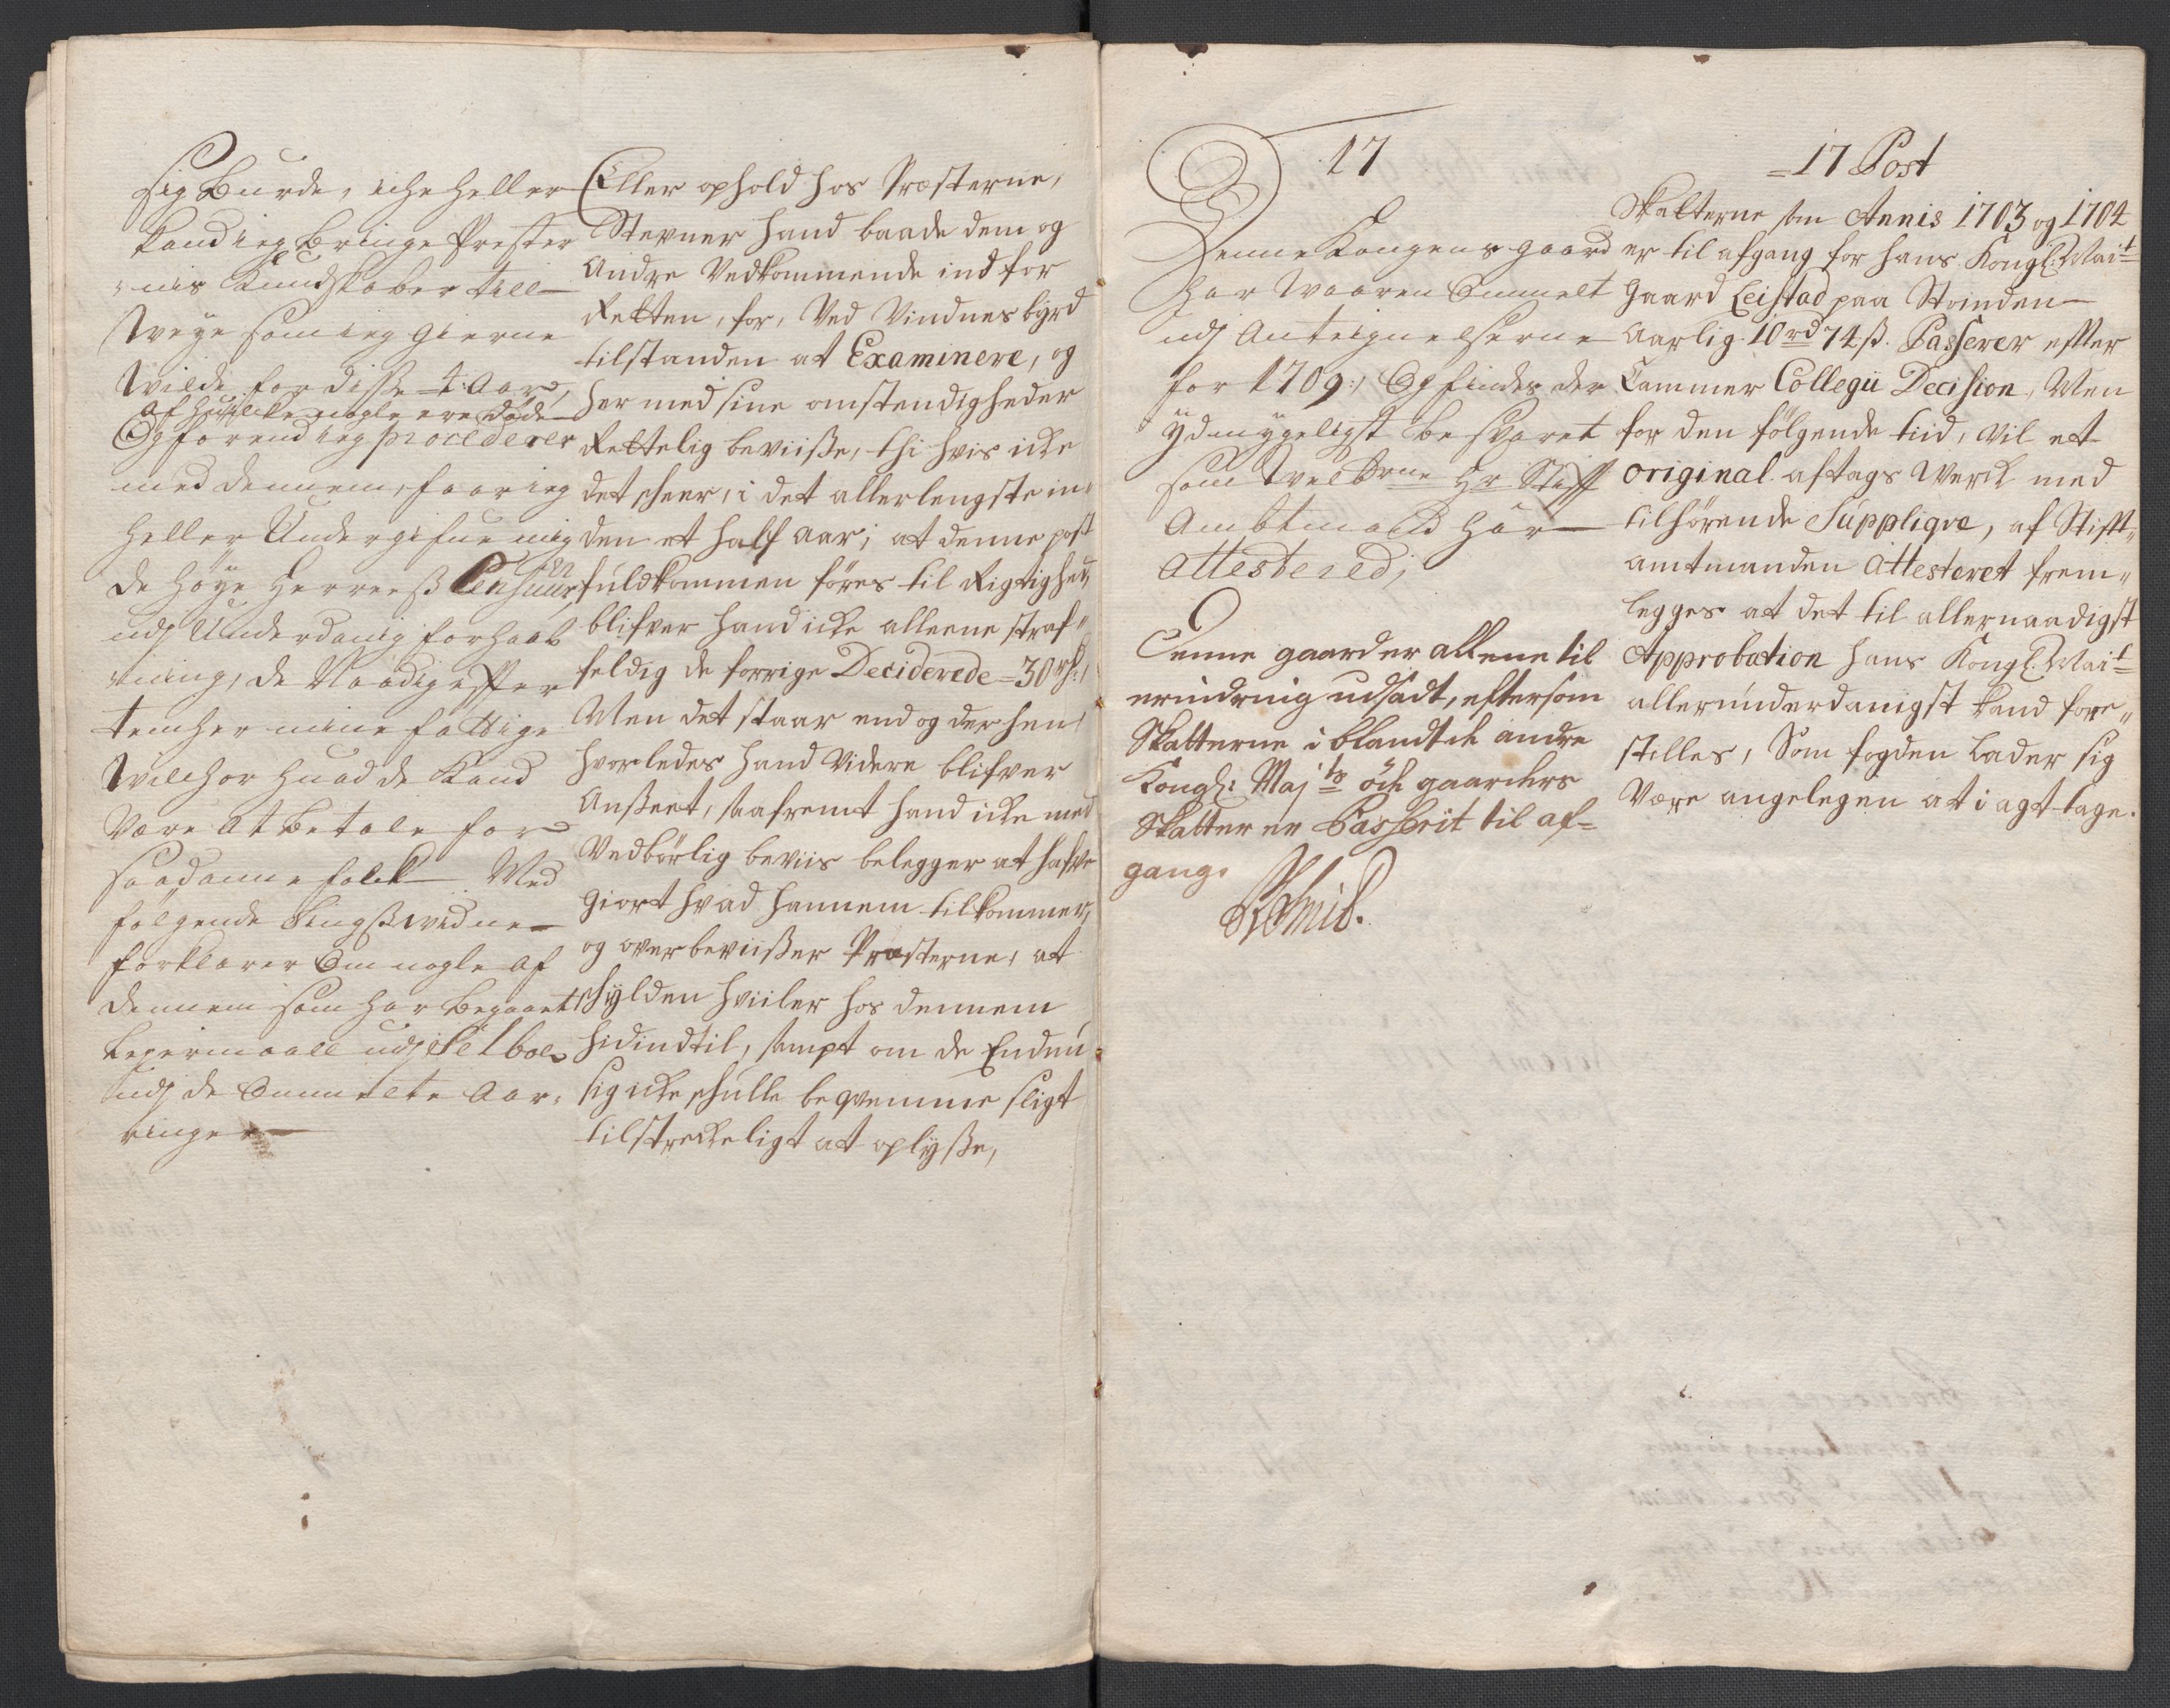 sig Burde, iche heller
kand ieg bringe Prester
nis Kundskaber till
weye som ieg gierne
wilde for disse 4 Aar,
Af huilcke nogle ere döde
Og förend ieg procederer
med dennem, faar ieg
heller Undergifue mig
de höye Herrers Censuur
udj Underdanig forhaab
ning, de Naadigst
mine fattige
Wilchor huad de Kand
Være at betale for
saadanne folck Med
følgende tingswidne
forklarer Om nogle af
dennem som har begaaet
Leyermaall udj Selboe
udj de Ommelte Aar,
ringer
Eller ophold hos Præsterne,
Stevner hand baade dem og
Andre Vedkommende ind for
Retten, for, Ved Vindnesbyrd
tilstanden at Examinere, og
her med sine omstendigheder
Rettelig beviiße, thi hvis icke
det scheer, i det allerlengste in„
den et half aar, at denne post
fuldkommen föres til Rigtighed,
blifver hand icke alleene straf„
feldig de forrige Deciderede 30 rd.,
Men det staar end og der hen,
hvorledes hand Videre blifver
Anßeet, saafremt hand icke med
Vedbörlig beviis belegger at hafve
giort hvad hannem tilkommer,
og overbeviißer Præsterne, at
schylden hviiler hos dennem
hidindtil, sampt om de Endnu
sig icke schulle beqvemme sligt
tilstreckeligt at oplyße,
17
Denne Kongens gaard
har waaren Ommelt
udj Anteignelserne
for 1709: Og findes der
ydmygeligst besvaret
som Welbrne Hr Stift
Ambtmand har
Attestered,
Denne gaard er alleene til
erindring udsadt, eftersom
Skatterne i blandt de andre
Kongl: Maj ts öde gaarders
Skatter er Passerit til af=
gang.
=17 Post
Skatterne som Annis 1703 og 1704
er til afgang for hans Kongl. Mait
gaard Leistad paa Strinden
Aarlig 10 rd 74 ß. Passerer efter
Cammer Collegii Decision, Men
for den fölgende tiid, vil et
original aftags Werck med
tilhörende Suppliqve, af Stift„
amtmanden Attesteret frem„
legges at det til allernaadigst
Approbation hans Kongl. Mait
allerunderdanigst kand fore„
stilles, Som fogden lader sig
Være angelegen at i agt tage.